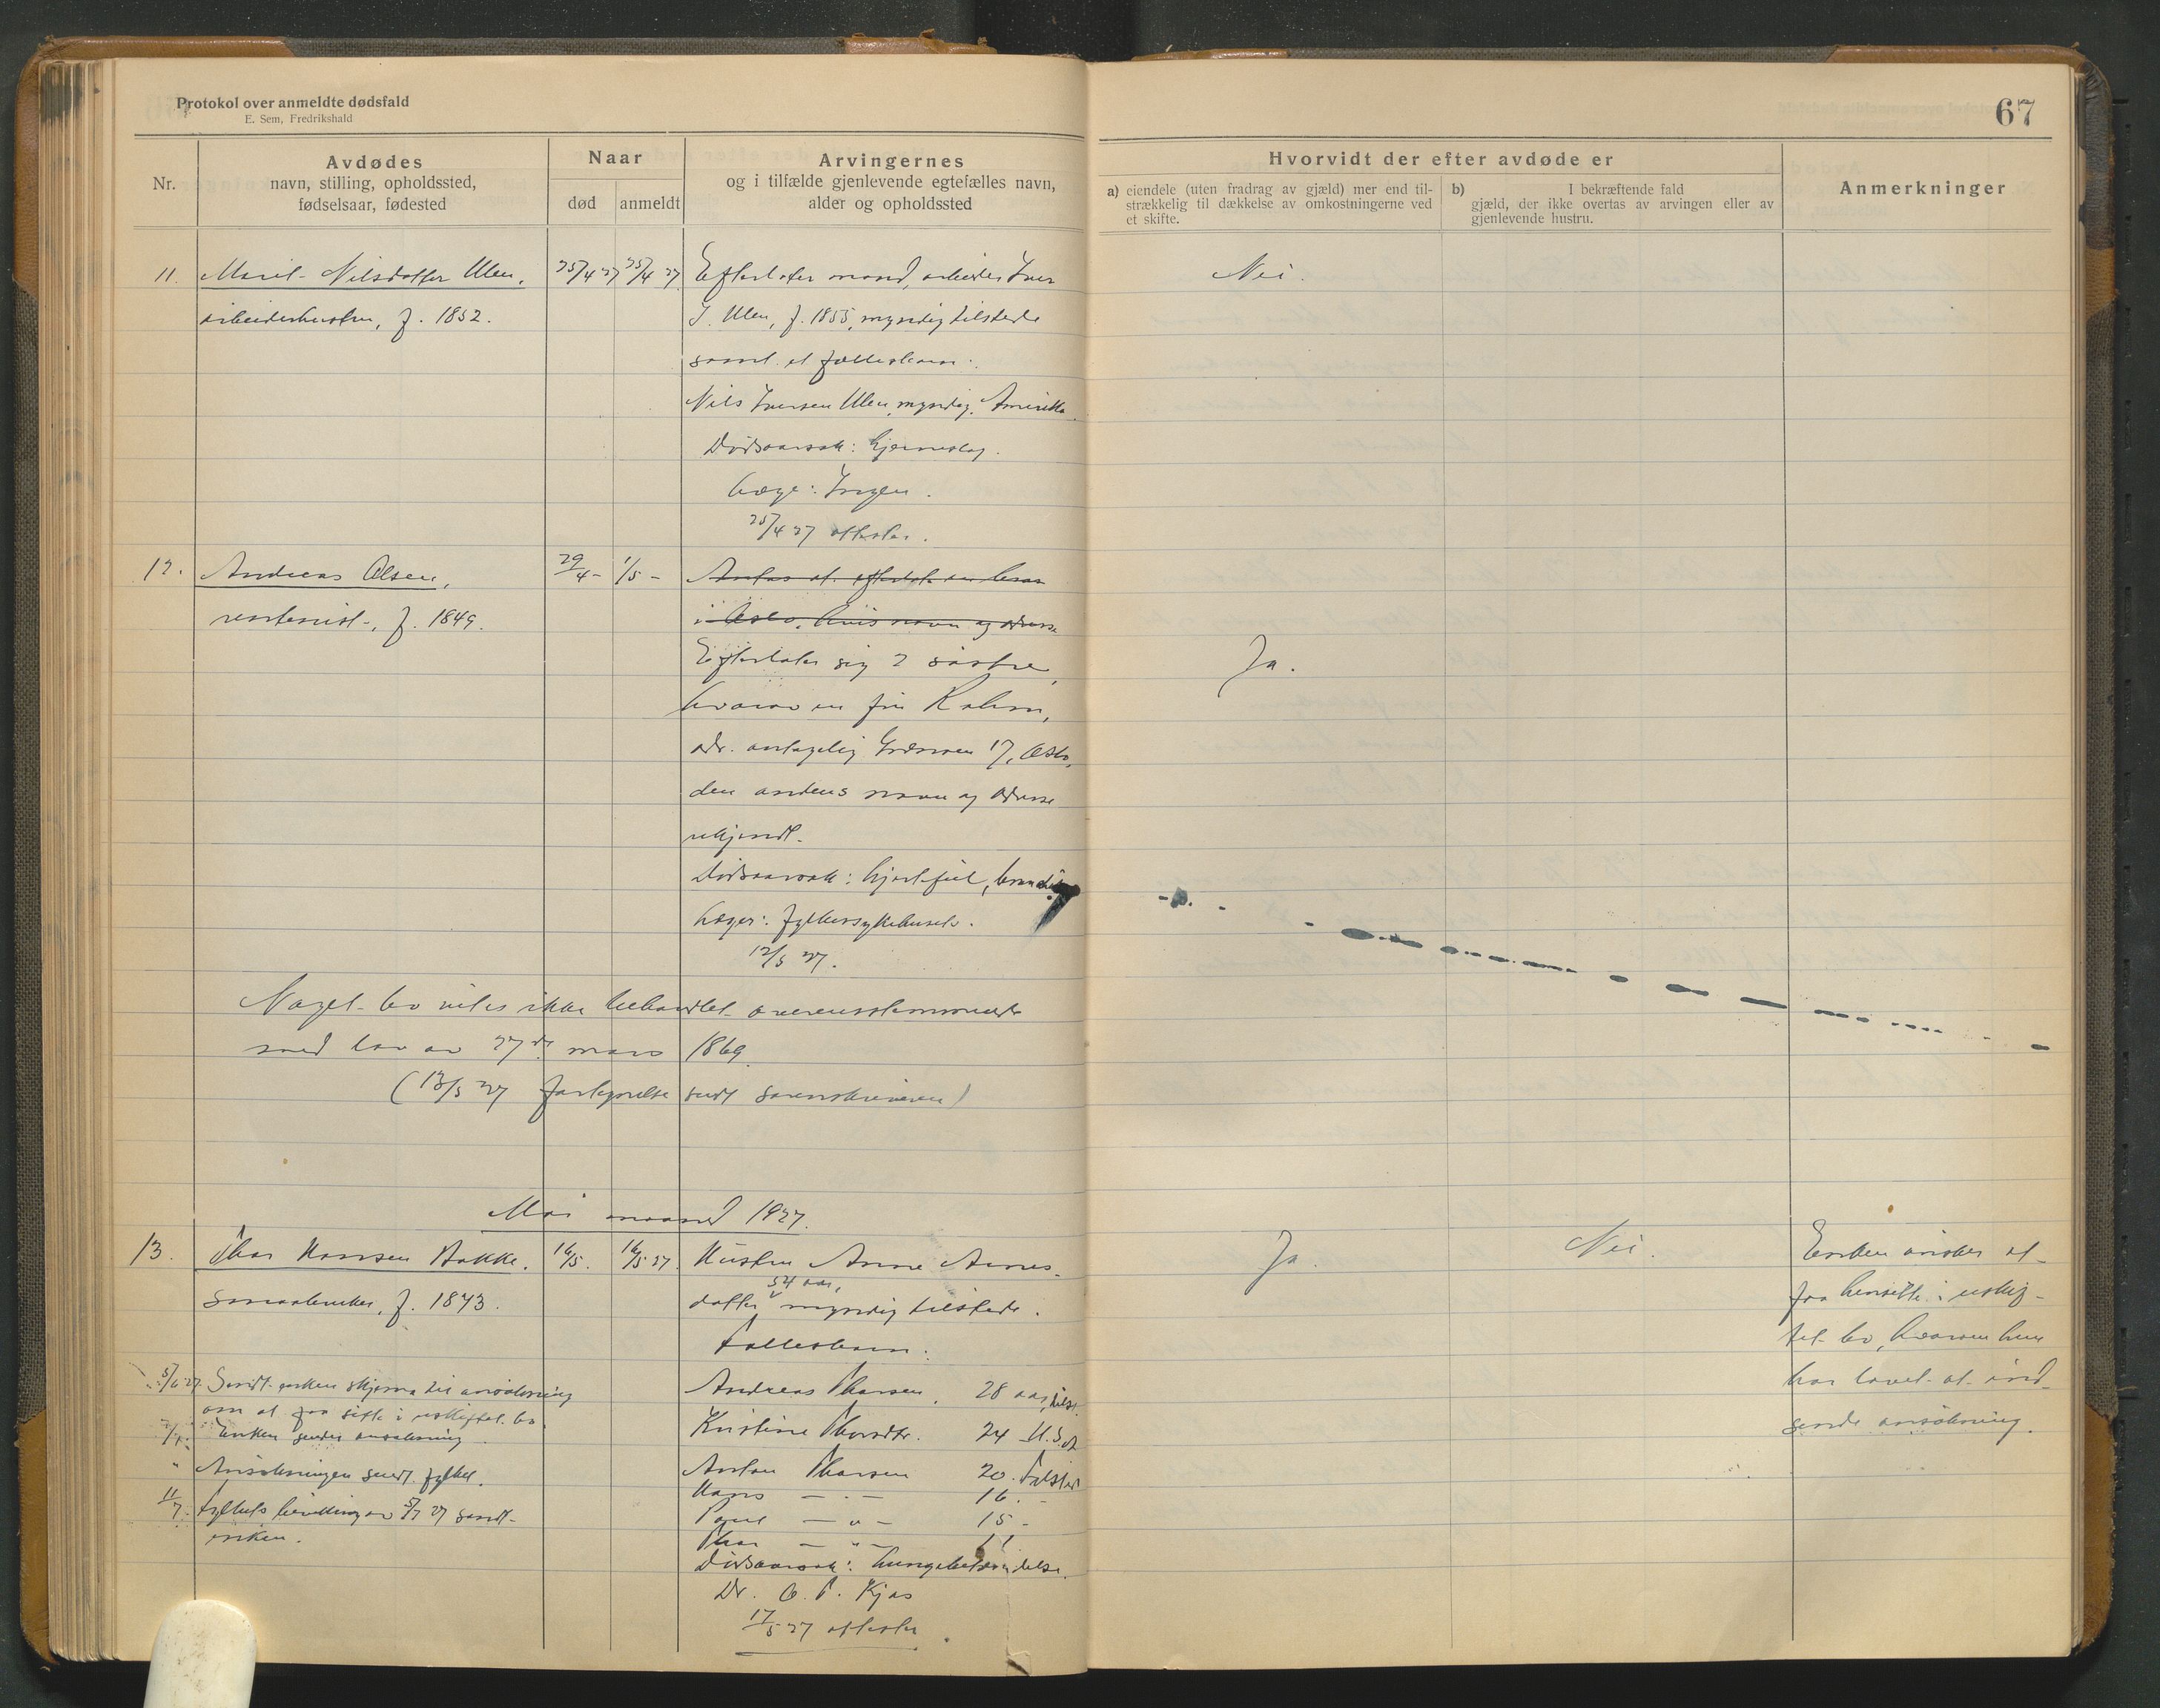 Protokol over anmeldte dødsfald
E. Sem, Fredrikshald
67
Nr.
Avdødes
navn, stilling, opholdssted,
fødselsaar, fødested
Naar
død
anmeldt
Arvingernes
og i tilfælde gjenlevende egtefælles navn,
alder og opholdssted
Hvorvidt der efter avdøde er
a) eiendele (uten fradrag av gjæld) mer end til-
strækkelig til dækkelse av omkostningerne ved
et skifte.
b) I bekræftende fald
gjæld, der ikke overtas av arvingen eller av
gjenlevende hustru.
Anmerkninger
11. Marit Nilsdatter Ulen,
arbeiderhustru, f. 1852.
25/4 27
25/4 27.
Efterlater mand, arbeider Iver
I. Ulen, f. 1855, myndig tilstede
samt et fællesbarn:
Nils Iversen Ulen, myndig, Amerika
Dødsaarsak: Hjerneslag.
Læge: Ingen.
25/4 27 attester.
Nei.
12. Andreas Olsen,
rentenist, f. 1849.
29/4 -
1/5 -
Antas at efterlate en bror
i Oslo, hvis navn og adresse
Efterlater sig 2 søstre,
hvorav en fru Rehm,
adr. antagelig 17, Oslo,
den andens navn og adresse
ukjendt.
Dødsaarsak: hjertefeil,
Læger: fylkessykehusets.
12/5 27.
Ja.
Noget bo vites ikke behandlet overensstemmende
med lov av 27de mars 1869
(13/5 27 forlegnelse sendt sorenskriveren)
Mai maaned 1927.
13. Thor Hansen Bakke.
smaabruker, f. 1843.
16/5.
16/5 27.
Hustru Anne Arnes-
54 aar,
datter, myndig tilstede.
Fællesbarn:
Andreas Thorsen, 28 aar, tilst.
Kristine Thorsdtr. 24 U.S.A
Anton Thorsen 20. tilsted
Hans — . — 16. -
Paul — " — 15 -
Thor — " — 11
Dødsaarsak: lungebetændelse.
Dr. O. P. Kjøs
17/5 27 attester
Ja.
Nei.
Enken ønsker at
faa hensitte i uskif-
tet bo, hvorom hun
har lovet at ind-
sende ansøkning.
5/6 27 Sendt enken skjema til ansøkning
om at faa sitte i uskiftet bo.
Enken sender ansøkning
" Ansøkningen sendt fylket.
11/7. Fylkets bevilling av 5/7 27 sendt
enken.